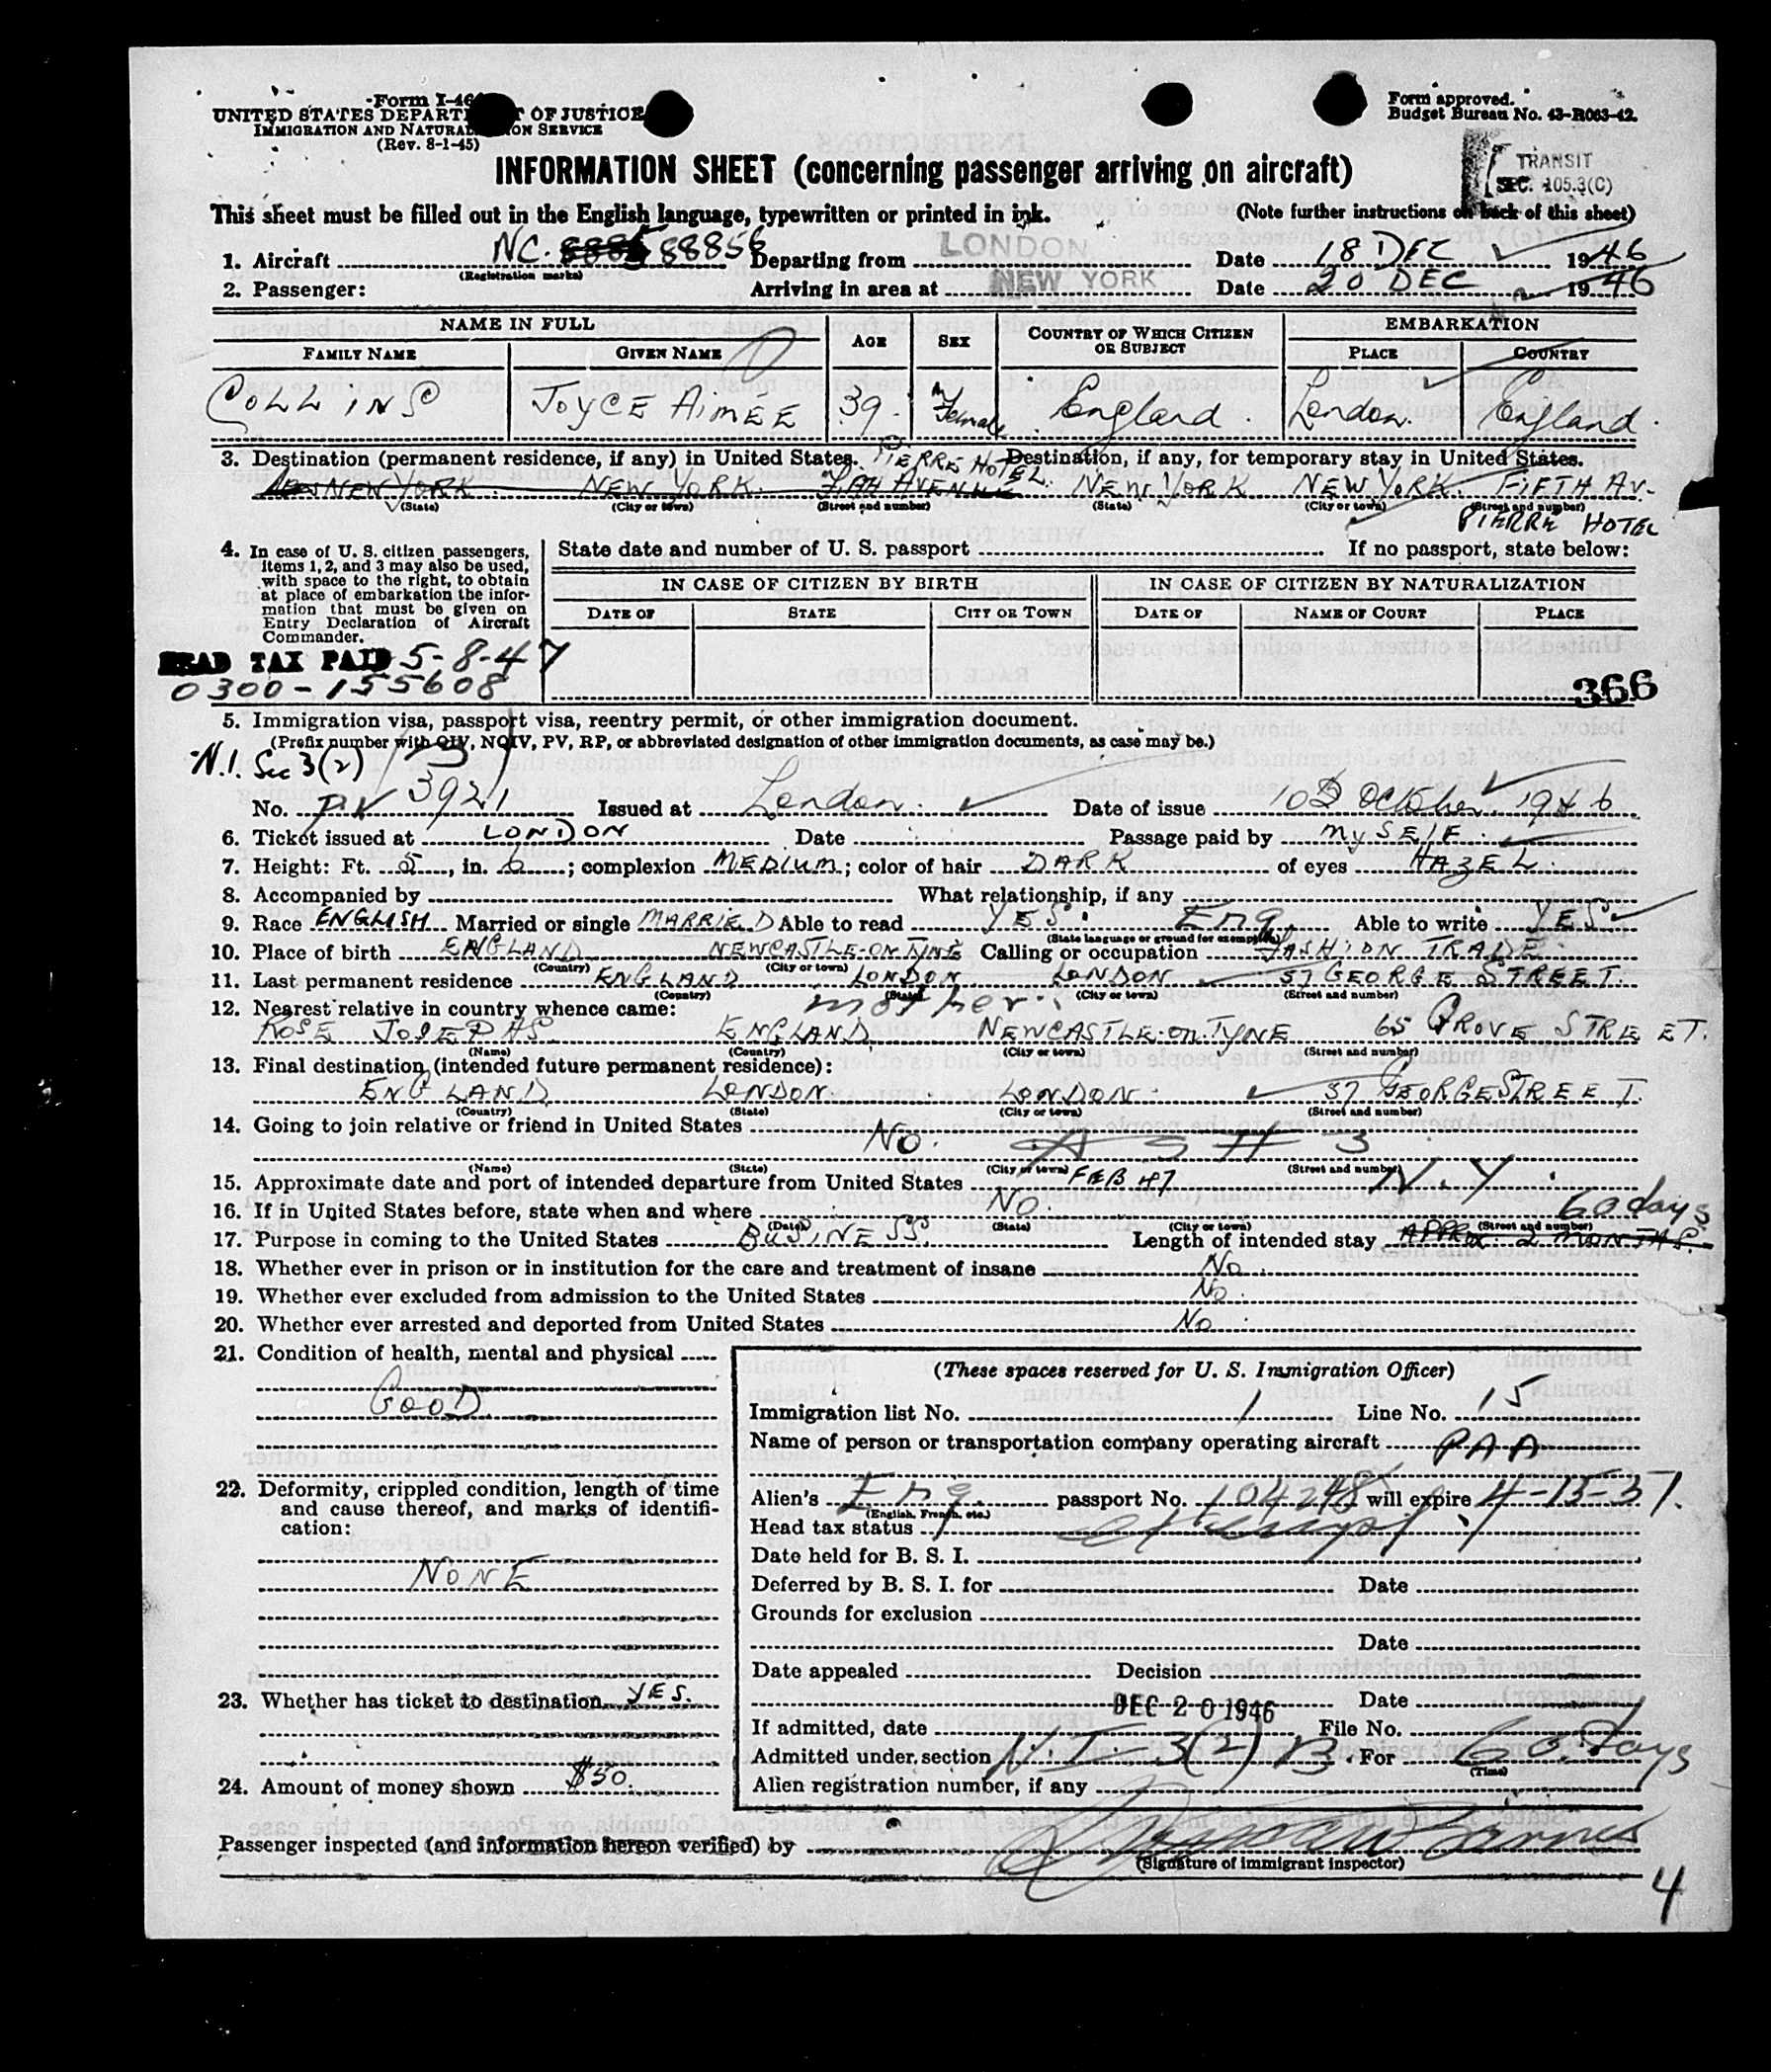 Form I-46
UNITED STATES DEPART T OF JUSTICE
IMMIGRATION AND NATURAL ON SERVICE
(Rev. 8-1-45)
Form approved.
Budget Bureau No. 43-R063-42.
TRANSIT
SEC. 105.3(C)
INFORMATION SHEET (concerning passenger arriving on aircraft)
This sheet must be filled out in the English language, typewritten or printed in ink. (Note further instructions on back of this sheet)
1. Aircraft NC. 88856 Departing from LONDON Date 18 DEC 1946
(Registration marks)
2. Passenger: Arriving in area at NEW YORK Date 20 DEC 1946
NAME IN FULL AGE SEX COUNTRY OF WHICH CITIZEN OR SUBJECT EMBARKATION
FAMILY NAME GIVEN NAME PLACE COUNTRY
COLLINS JOYCE AIMÉE 39. Female England. London. England.
3. Destination (permanent residence, if any) in United States. PIERRE HOTEL. Destination, if any, for temporary stay in United States.
NEW YORK. NEW YORK. FIFTH AVENUE NEW YORK NEW YORK. FIFTH AV.
(State) (City or town) (Street and number) (State) (City or town) (Street and number)
PIERRE HOTEL
4. In case of U. S. citizen passengers, items 1, 2, and 3 may also be used, with space to the right, to obtain at place of embarkation the information that must be given on Entry Declaration of Aircraft Commander.
State date and number of U. S. passport If no passport, state below:
IN CASE OF CITIZEN BY BIRTH IN CASE OF CITIZEN BY NATURALIZATION
DATE OF STATE CITY OR TOWN DATE OF NAME OF COURT PLACE
HEAD TAX PAID 5-8-47
0300-155608
366
5. Immigration visa, passport visa, reentry permit, or other immigration document.
(Prefix number with QIV, NQIV, PV, RP, or abbreviated designation of other immigration documents, as case may be.)
N.I. Sec 3(2)
No. PV 3921 Issued at London. Date of issue 10 October. 1946
6. Ticket issued at LONDON Date Passage paid by mySELF.
7. Height: Ft. 5, in. 6; complexion MEDIUM; color of hair DARK of eyes HAZEL.
8. Accompanied by What relationship, if any
9. Race ENGLISH Married or single MARRIED Able to read YES. Eng Able to write YES
(State language or ground for exemption)
10. Place of birth ENGLAND NEWCASTLE-ON-TYNE Calling or occupation FASHION TRADE.
(Country) (City or town)
11. Last permanent residence ENGLAND LONDON LONDON 37 GEORGE STREET.
(Country) (State) (City or town) (Street and number)
12. Nearest relative in country whence came: mother.
ROSE JOSEPHS. ENGLAND NEWCASTLE-ON-TYNE 65 GROVE STREET.
(Name) (Country) (City or town) (Street and number)
13. Final destination (intended future permanent residence):
ENGLAND LONDON. LONDON. 37 GEORGE STREET.
(Country) (State) (City or town) (Street and number)
14. Going to join relative or friend in United States
No.
(Name) (State) (City or town) (Street and number)
15. Approximate date and port of intended departure from United States FEB 47 N.Y.
16. If in United States before, state when and where No.
(Date) (State) (City or town) (Street and number)
60 days
17. Purpose in coming to the United States BUSINESS. Length of intended stay APPROX 2 MONTHS.
18. Whether ever in prison or in institution for the care and treatment of insane No.
19. Whether ever excluded from admission to the United States No.
20. Whether ever arrested and deported from United States No.
21. Condition of health, mental and physical
GOOD
22. Deformity, crippled condition, length of time and cause thereof, and marks of identification:
NONE
23. Whether has ticket to destination YES.
24. Amount of money shown $50.
(These spaces reserved for U. S. Immigration Officer)
Immigration list No. 1 Line No. 15
Name of person or transportation company operating aircraft PAA
Alien's Eng. passport No. 104248 will expire 4-15-51.
(English, French, etc.)
Head tax status
Date held for B. S. I.
Deferred by B. S. I. for Date
Grounds for exclusion
Date
Date appealed Decision
Date
If admitted, date DEC 20 1946 File No.
Admitted under section N.I. 3(2) B. For 60 days
(Time)
Alien registration number, if any
Passenger inspected (and information hereon verified) by
(Signature of immigrant inspector)
4